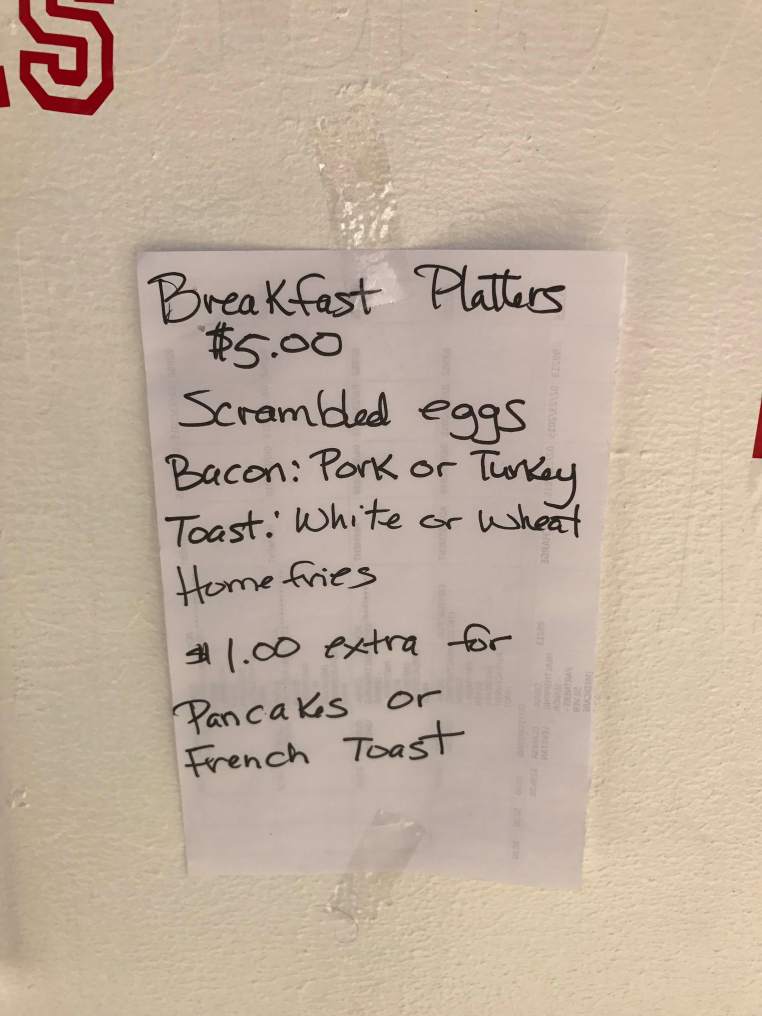 S
Breakfast Platters
$5.00
Scrambled eggs
Bacon: Pork or Turkey
Toast: White or Wheat
Home fries
$1.00 extra for
Pancakes or
French Toast